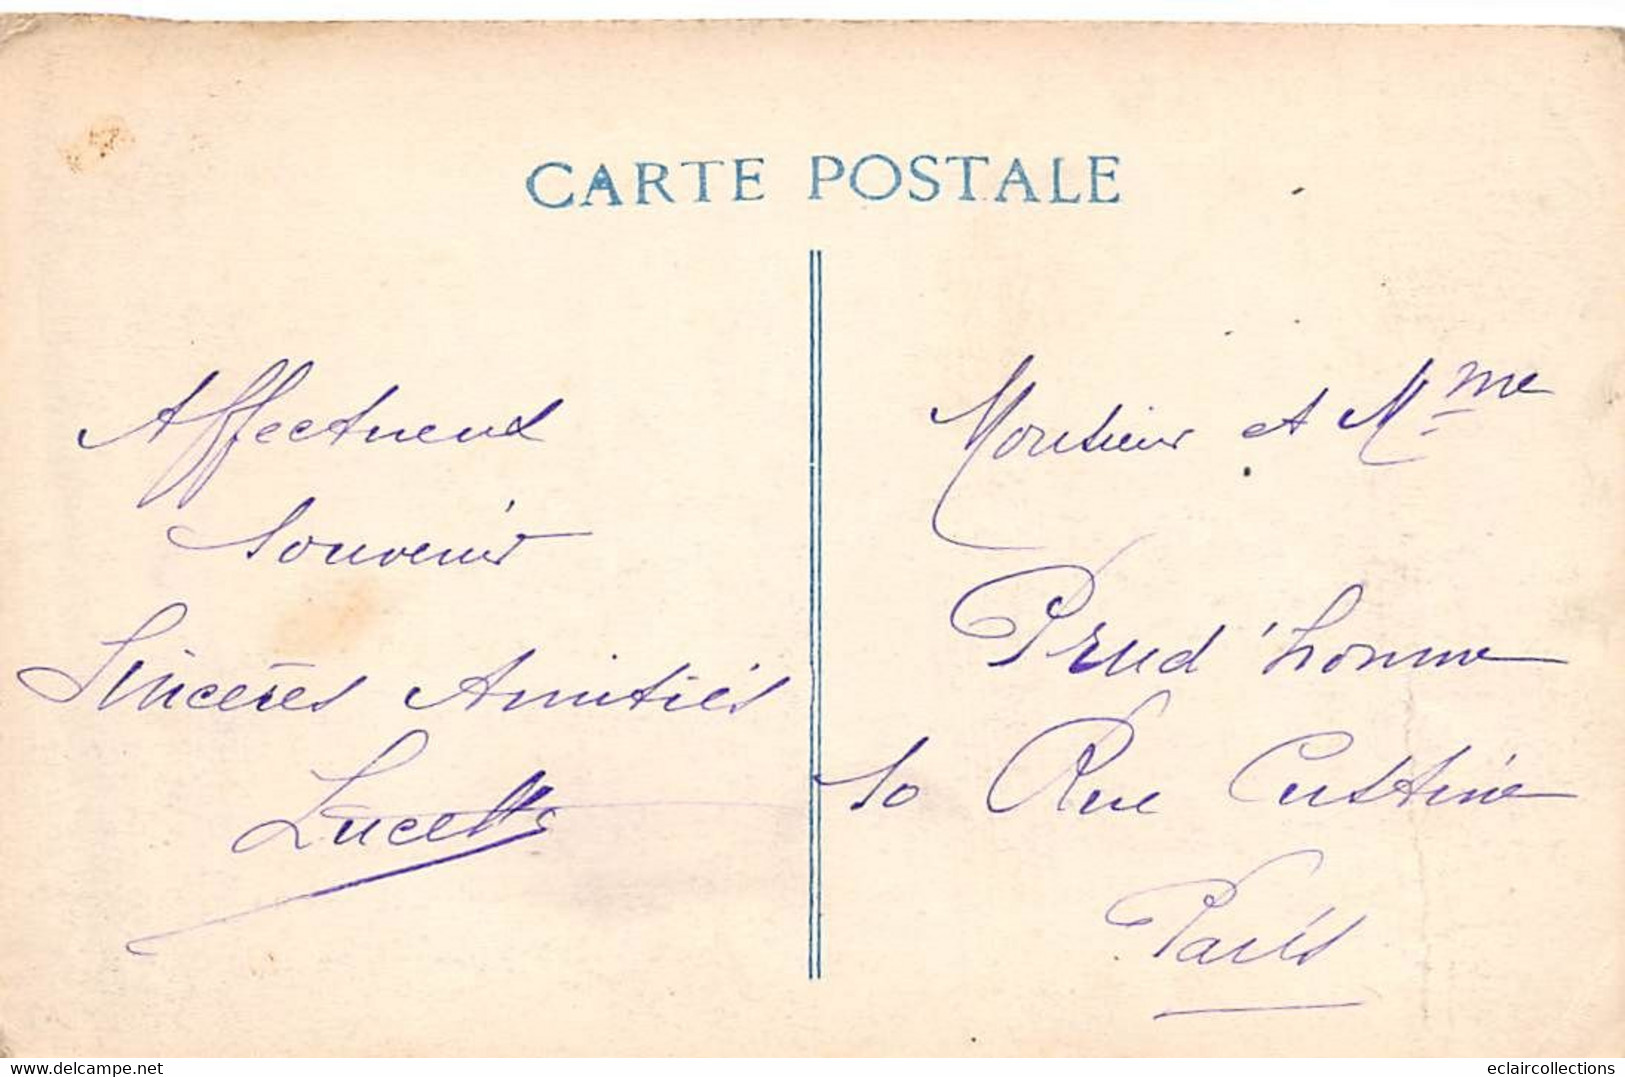 CARTE POSTALE
Affectueux
Souvenir
Sincères Amitiés
Lucette
Monsieur et Mme
Prud'homme
10 Rue Custine
Paris
delcampe.net
eclaircollections